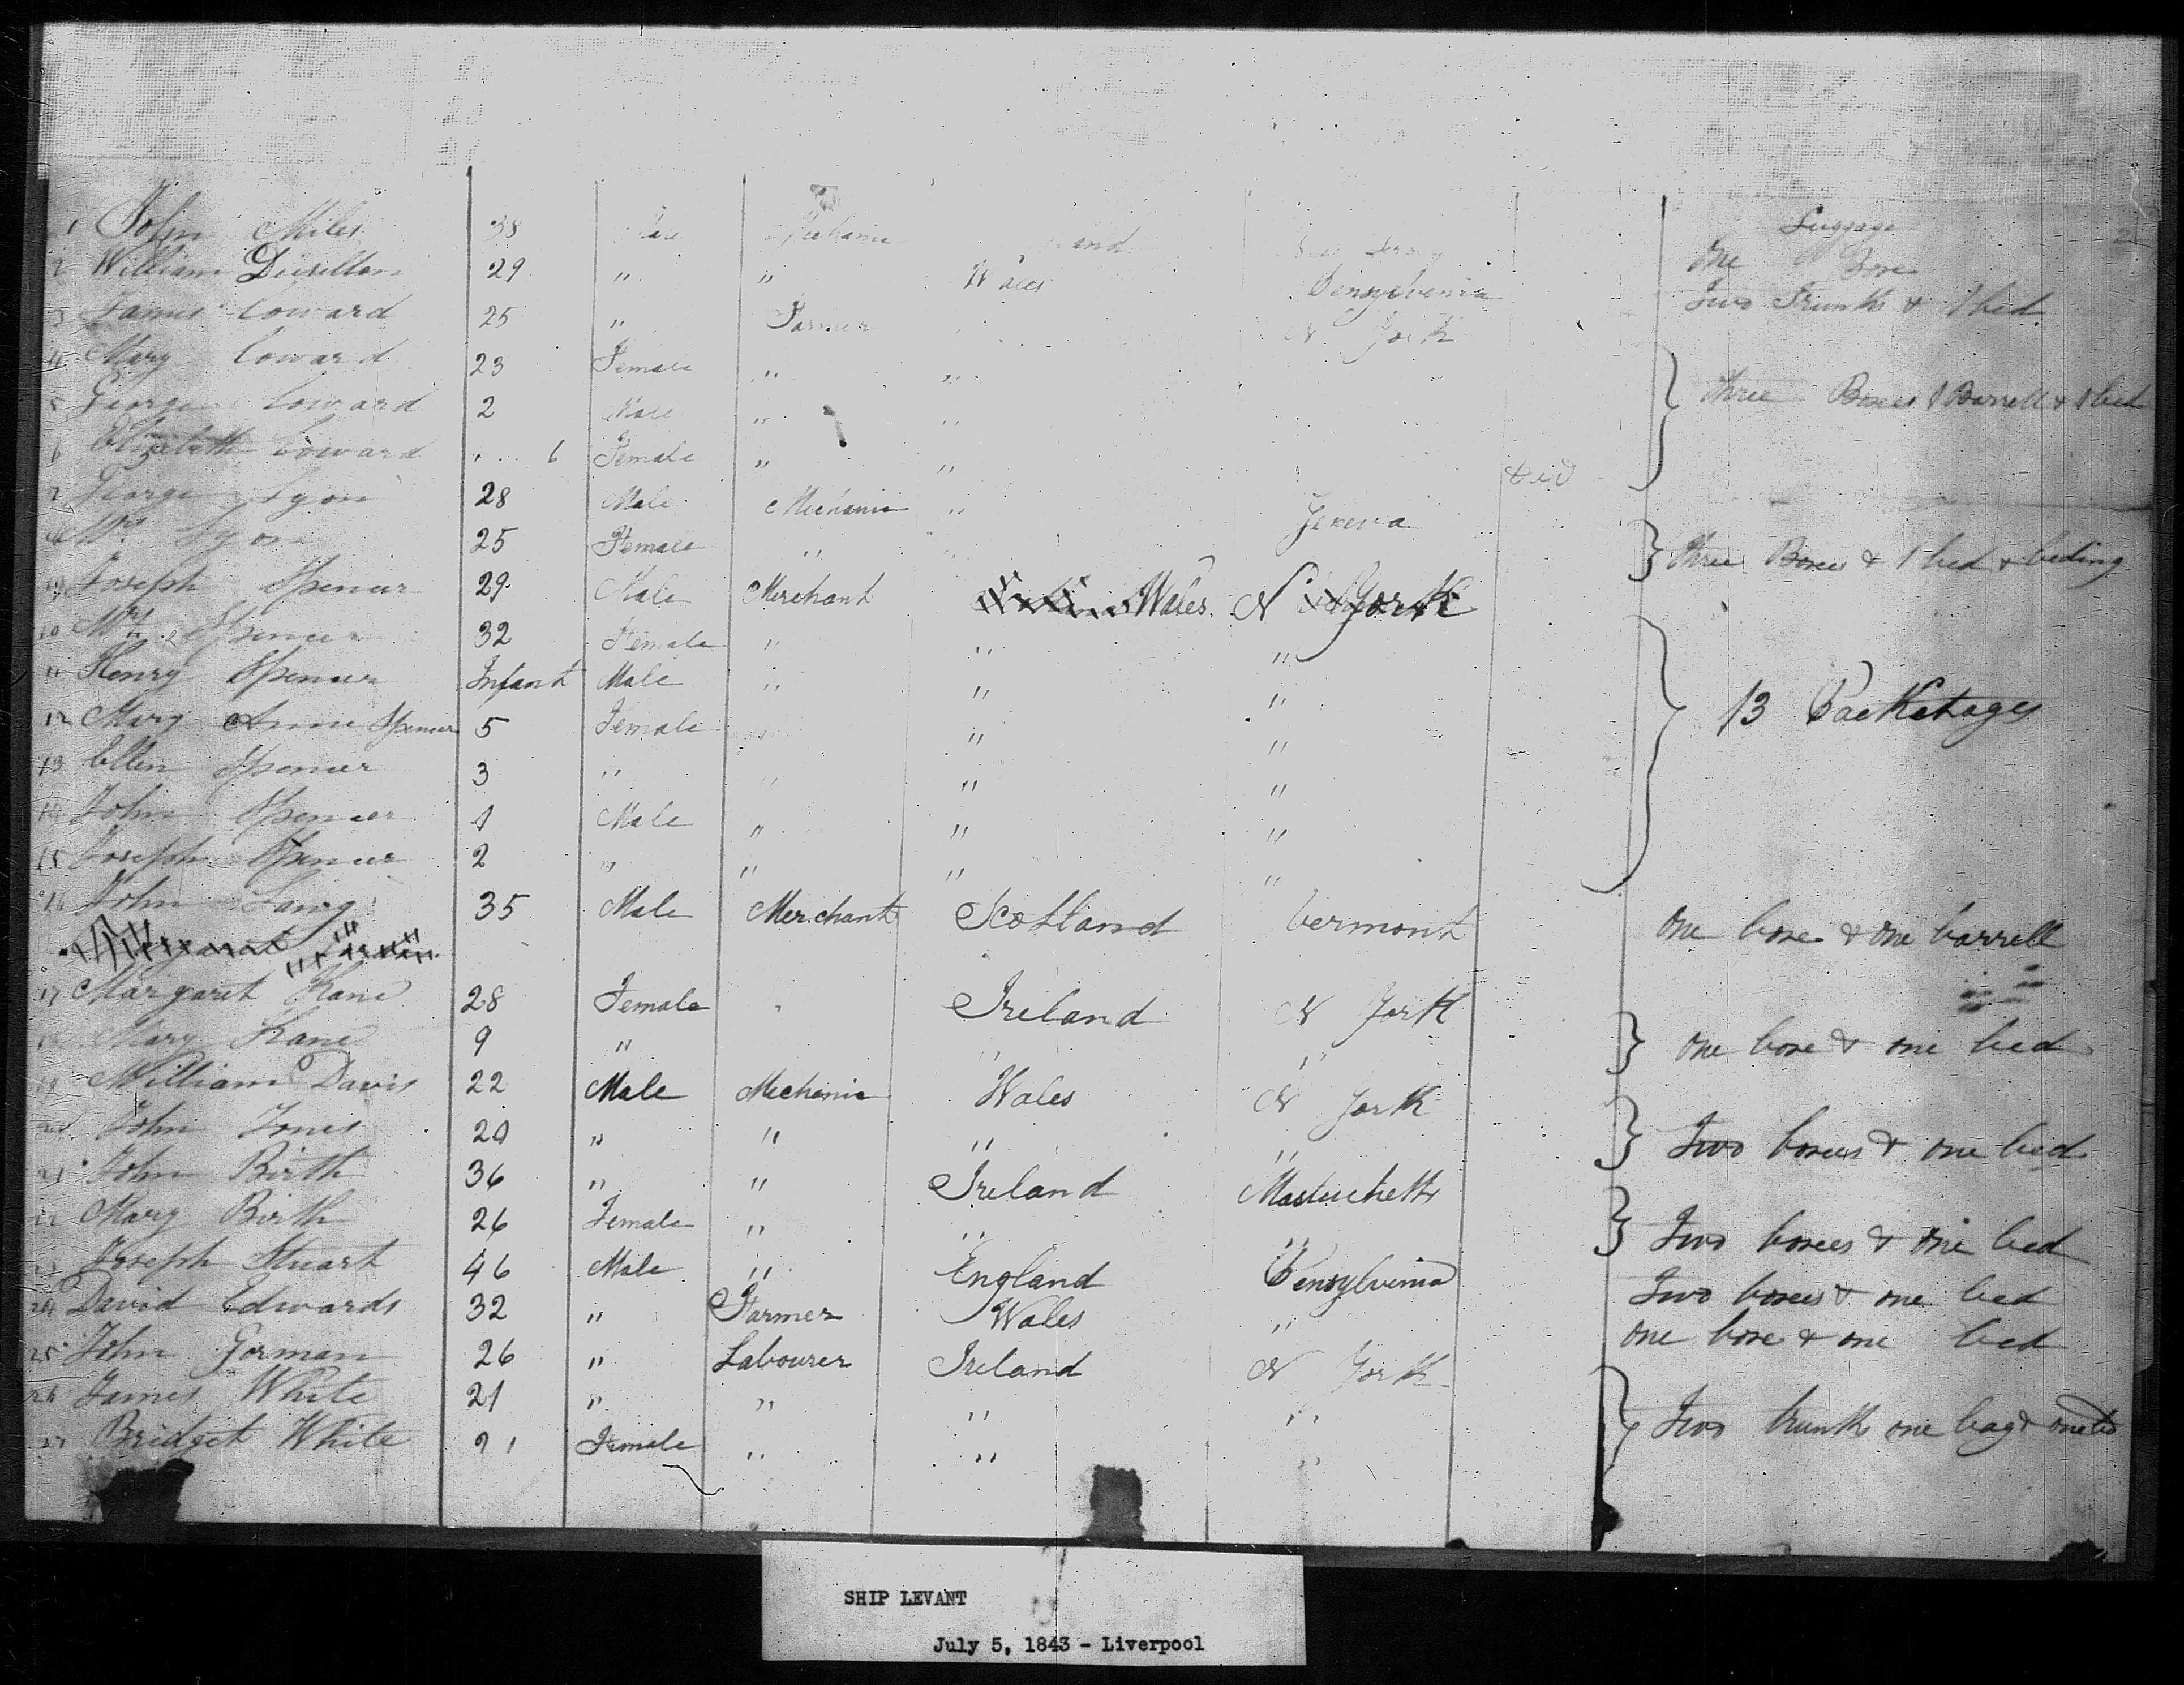 Luggage
1 John Miles 38 Male Mechanic and New Jersey One Box
2 William 29 " " Wales Pensylvenia Two Trunks & 1 bed
3 James Coward 25 " Farmer N York
4 Mary Coward 23 Female " "
5 George Coward 2 Male " " three Boxes 1 Barrell & 1 bed
6 Elizabeth Coward " 6 Female " " " Died
7 George Lyon 28 Male Mechanic " Geneva
8 Mrs Lyon 25 Female " " three Boxes & 1 bed & beding
9 Joseph Spencer 29 Male Merchant Wales N York
10 Mrs Spencer 32 Female " " "
11 Henry Spencer Infant Male " " "
12 Mary Anne Spencer 5 Female " " " 13 Packetages
13 Ellen Spencer 3 " " " "
14 John Spencer 1 Male " " "
15 Joseph Spencer 2 " " " "
16 John Lang 35 Male Merchant Scotland Vermont One boxe & One barrell
17 Margaret Kane 28 Female " Ireland N York
18 Mary Kane 9 " " " one boxe & one bed
19 William Davis 22 Male Mechanic Wales N York
20 John Jones 20 " " " " Two boxes & one bed
21 John Birth 36 " " Ireland Massuchetts
22 Mary Birth 26 Female " " " Two boxes & one bed
23 Joseph Stuart 46 Male " England Pensylvenia Two boxes & one bed
24 David Edwards 32 " Farmer Wales " one boxe & one bed
25 John Gorman 26 " Labourer Ireland N York
26 James White 21 " " " " Two trunks one bag &
27 Bridget White 21 Female " " "
SHIP LEVANT
July 5, 1843 - Liverpool